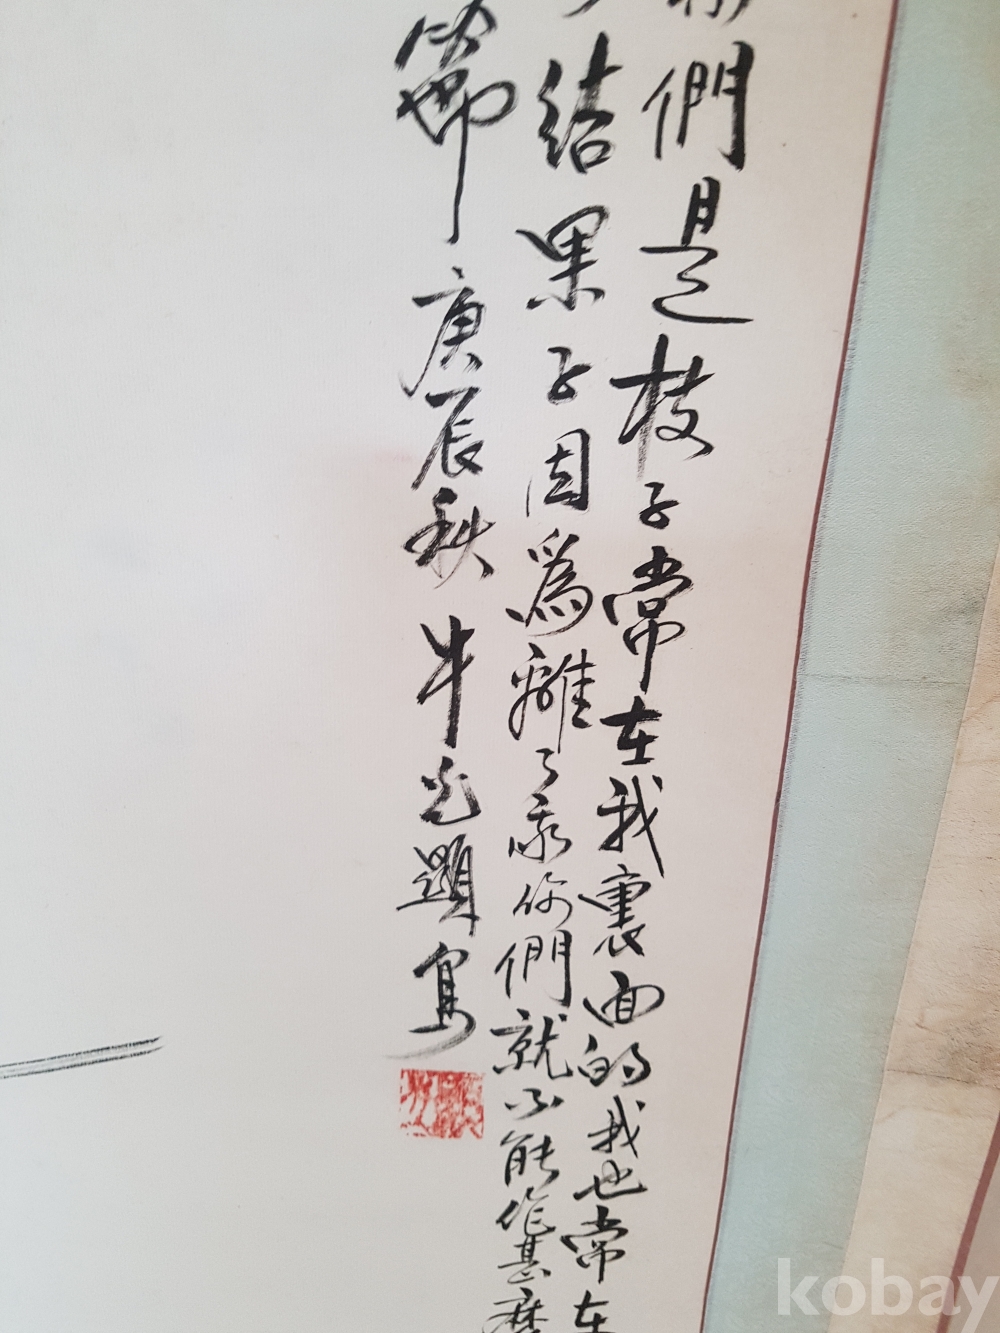 們是枝子常在我裏面的我也常在
結果子因為離了我你們就不能作甚麼
節 庚辰秋 牛光題寫
kobay